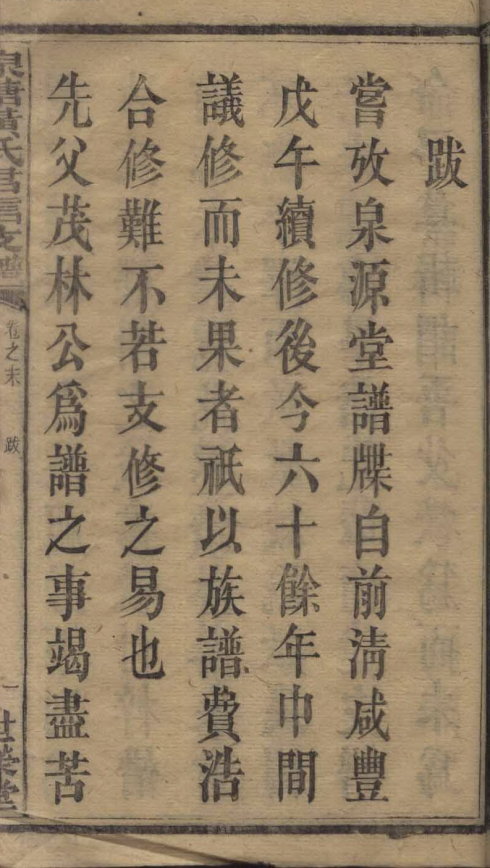 跋
嘗攷泉源堂譜牒自前清咸豐
戊午續修後今六十餘年中間
議修而未果者祇以族譜費浩
合修難不若支修之易也
先父茂林公爲譜之事竭盡苦
泉塘黃氏君信支譜
卷之末
跋
一
世榮堂